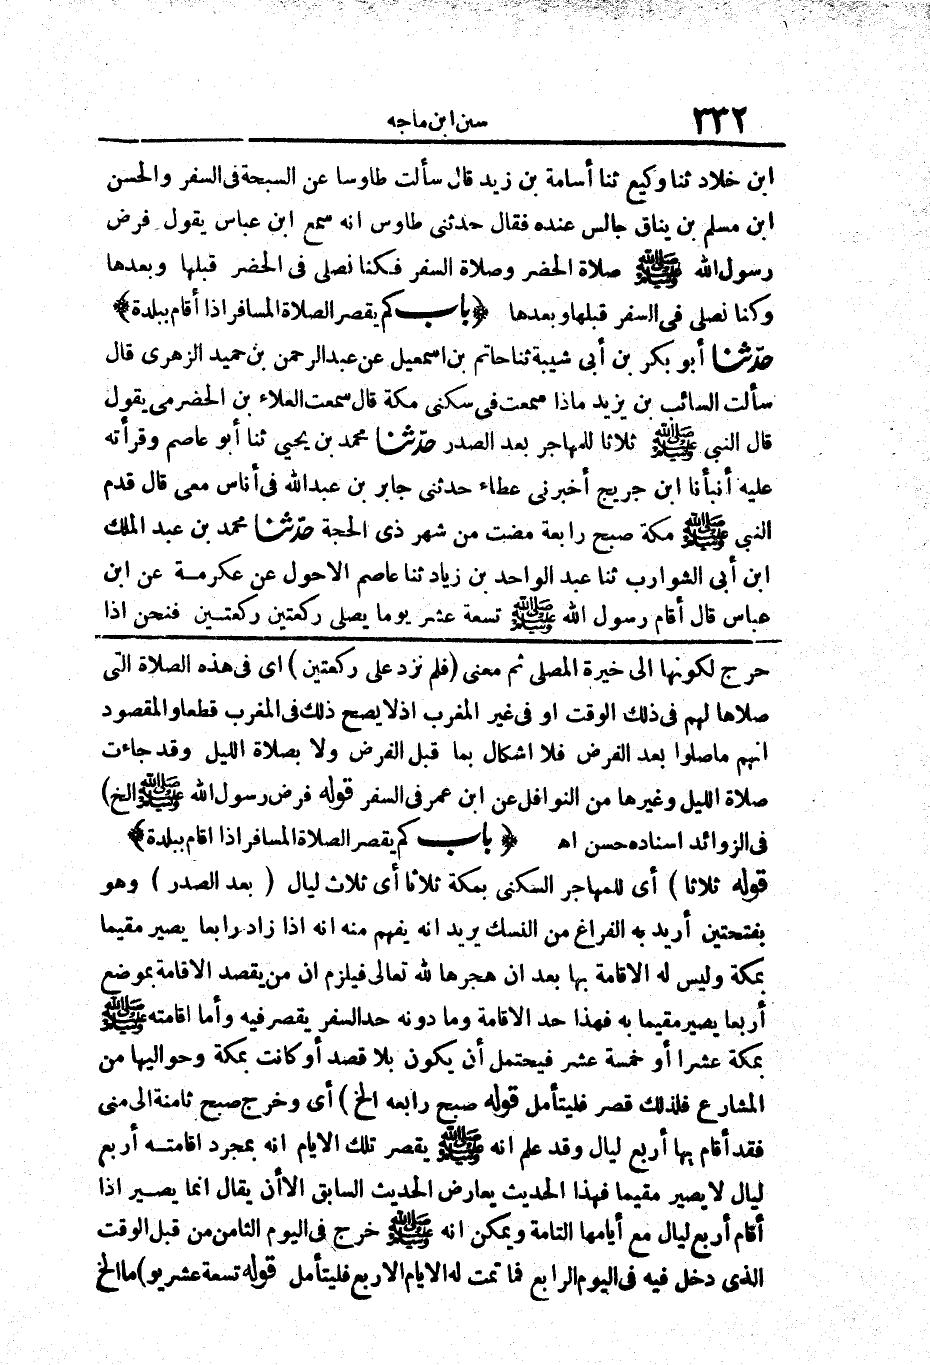 ٣٣٢ سنن ابن ماجه
ابن خلاد ثنا وكيع ثنا أسامة بن زيد قال سألت طاوسا عن السبحة فى السفر والحسن
ابن مسلم بن يناق جالس عنده فقال حدثنى طاوس انه سمع ابن عباس يقول فرض
رسول الله ﷺ صلاة الحضر وصلاة السفر فكنا نصلى فى الحضر قبلها وبعدها
وكنا نصلى فى السفر قبلها وبعدها ﴿باب كم يقصر الصلاة المسافر اذا أقام ببلدة﴾
حدّثنا أبو بكر بن أبى شيبة ثنا حاتم بن اسمعيل عن عبدالرحمن بن حميد الزهرى قال
سألت السائب بن يزيد ماذا سمعت فى سكنى مكة قال سمعت العلاء بن الحضرمى يقول
قال النبى ﷺ ثلاثا للمهاجر بعد الصدر حدّثنا محمد بن يحيى ثنا أبو عاصم وقرأته
عليه أنبأنا ابن جريج أخبرنى عطاء حدثنى جابر بن عبدالله فى أناس معى قال قدم
النبى ﷺ مكة صبح رابعة مضت من شهر ذى الحجة حدّثنا محمد بن عبد الملك
ابن أبى الشوارب ثنا عبد الواحد بن زياد ثنا عاصم الاحول عن عكرمة عن ابن
عباس قال أقام رسول الله ﷺ تسعة عشر يوما يصلى ركعتين ركعتين فنحن اذا
حرج لكونها الى خيرة المصلى ثم معنى (فلم نزد على ركعتين) اى فى هذه الصلاة التى
صلاها لهم فى ذلك الوقت او فى غير المغرب اذ لا يصح ذلك فى المغرب قطعا والمقصود
انهم ماصلوا بعد الفرض فلا اشكال بما قبل الفرض ولا بصلاة الليل وقد جاءت
صلاة الليل وغيرها من النوافل عن ابن عمر فى السفر قوله فرض رسول الله ﷺ الخ)
فى الزوائد اسناده حسن اه ﴿باب كم يقصر الصلاة المسافر اذا اقام ببلدة﴾
قوله ثلاثا ) أى للمهاجر السكنى بمكة ثلاثا أى ثلاث ليال ( بعد الصدر ) وهو
بفتحتين أريد به الفراغ من النسك يريد انه يفهم منه انه اذا زاد رابعا يصير مقيما
بمكة وليس له الاقامة بها بعد ان هجرها لله تعالى فيلزم ان من يقصد الاقامة بموضع
أربعا يصير مقيما به فهذا حد الاقامة وما دونه حد السفر يقصر فيه وأما اقامته ﷺ
بمكة عشرا أو خمسة عشر فيحتمل أن يكون بلا قصد أو كانت بمكة وحواليها من
المشارع فلذلك قصر فليتأمل قوله صبح رابعه الخ ) أى وخرج صبح ثامنة الى منى
فقد أقام بها أربع ليال وقد علم انه ﷺ يقصر تلك الايام انه بمجرد اقامتـه أربع
ليال لا يصير مقيما فهذا الحديث يعارض الحديث السابق الا أن يقال انما يصير اذا
أقام أربع ليال مع أيامها التامة ويمكن انه ﷺ خرج فى اليوم الثامن من قبل الوقت
الذى دخل فيه فى اليوم الرابع فما تمت له الايام الاربع فليتأمل قوله تسعة عشر يو)ما الخ